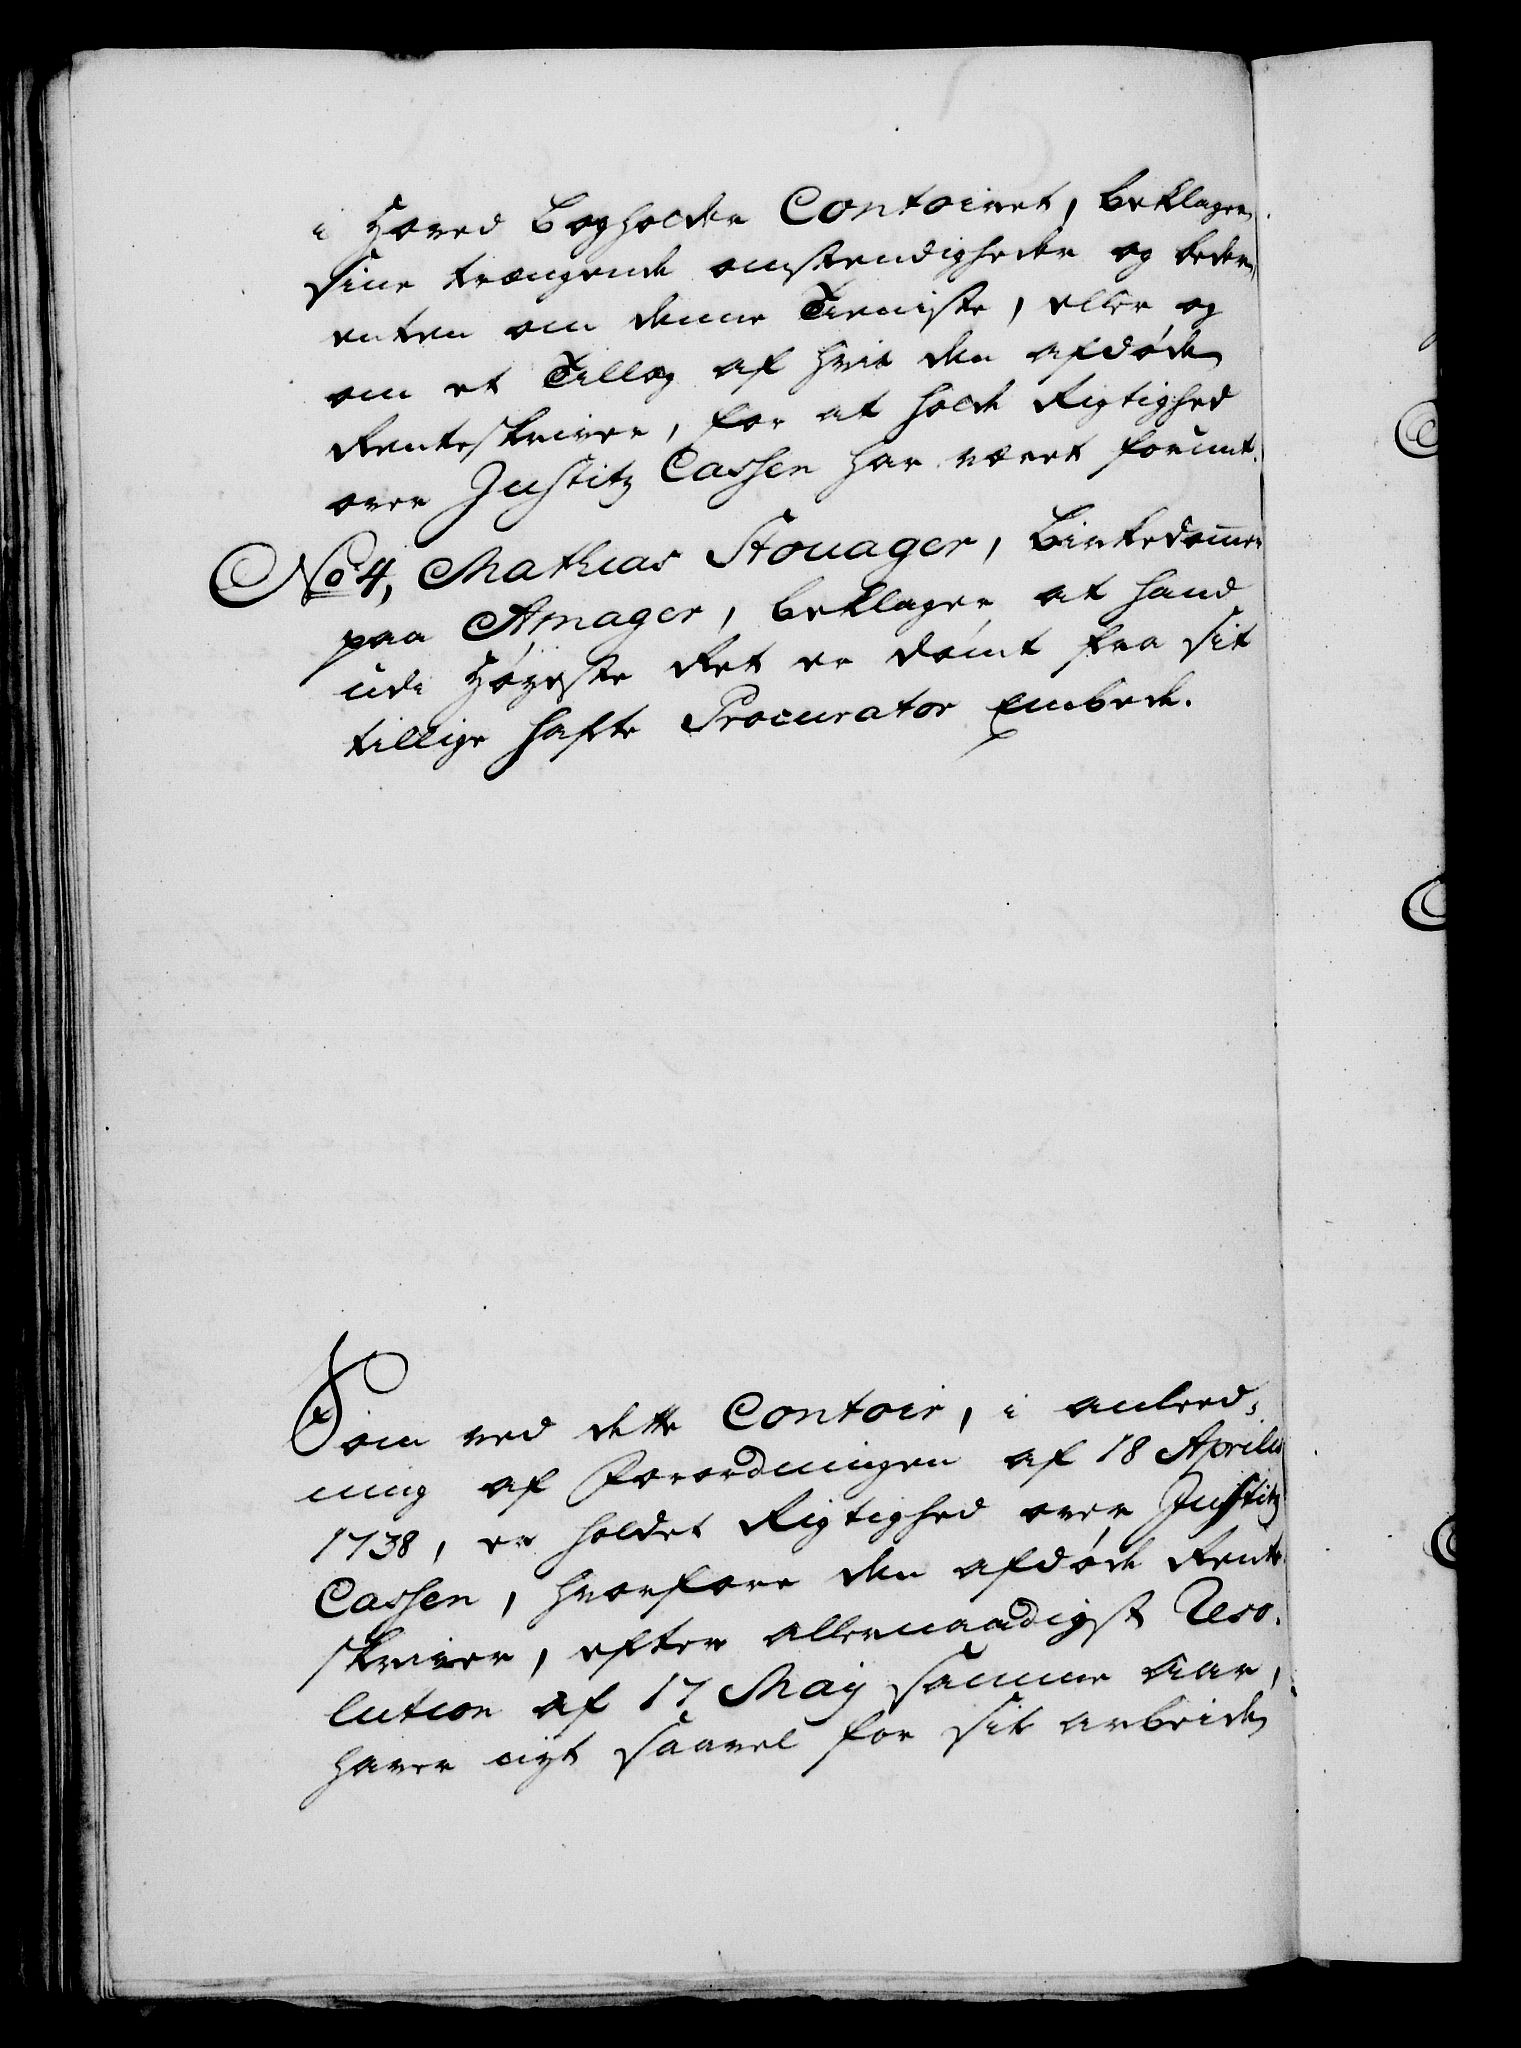 i Hoved Bogholder Contoiret, beklager
sine trængende omstendigheder og beder
enten om denne Tieniste, eller og
om et Tillæg af hvis den afdøde
Renteskriver, for at holde Rigtighed
over Justitz Cassen har været forunt.
No 4, Mathias Stouager, Birkedommer
paa Amager, beklager at hand
udi Høyeste Ret er dømt fra sit
tillige hafte Procurator Embede.
Som ved dette Contoir, i anleed-
ning af Forordningen af 18 Aprilis
1738, er holdet Rigtighed over Justitz
Cassen, hvorfore den afdøde Rente
skriver, efter allernaadigst Reso-
lution af 17 Maij samme Aar,
haver nyt saavel for sit arbeide